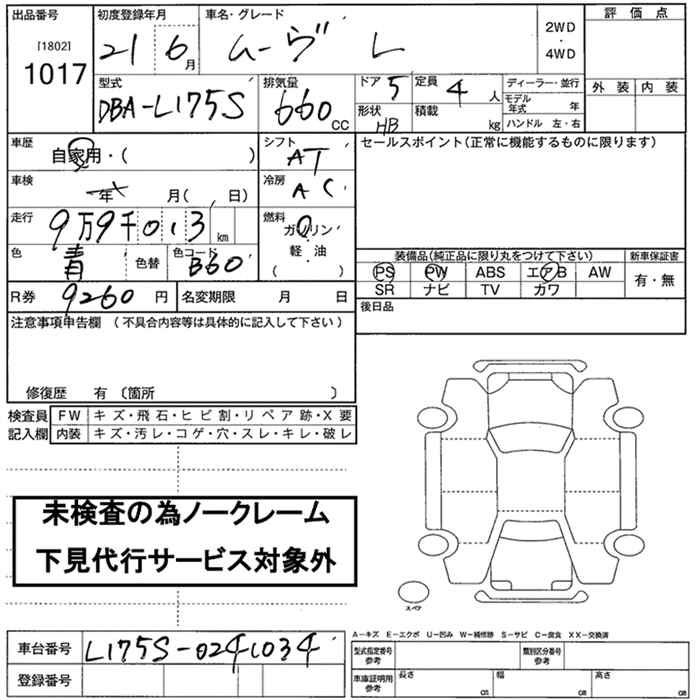 出品番号 初度登録年月 車名・グレード 評価点
[1802] 21 6月 ムーヴ L 2WD・4WD
1017
型式 排気量 ドア 5 定員 4人 ディーラー・並行 外装 内装
DBA-L175S 660cc 形状 HB 積載 kg モデル年式 年
ハンドル 左・右
車歴 自家用・( ) シフト AT セールスポイント(正常に機能するものに限ります)
車検 年 月( , 日) 冷房 AC
走行 9万9千013km 燃料 ガソリン
色 青 色替 色コード B60 軽・油
( )
装備品(純正品に限り丸をつけて下さい) 新車保証書
PS PW ABS エアB AW 有・無
SR ナビ TV カワ
R券 9260円 名変期限 月 日 後日品
注意事項申告欄 (不具合内容等は具体的に記入して下さい)
修復歴 有 〔箇所 〕
検査員 FW キズ・飛石・ヒビ割・リペア跡・X要
記入欄 内装 キズ・汚レ・コゲ・穴・スレ・キレ・破レ
未検査の為ノークレーム
下見代行サービス対象外
スペア
A-キズ E-エクボ U-凹み W-補修跡 S-サビ C-腐食 XX-交換済
車台番号 L175S-0241034 型式指定番号 参考 類別区分番号 参考
登録番号 車庫証明用 参考 長さ cm 幅 cm 高さ cm